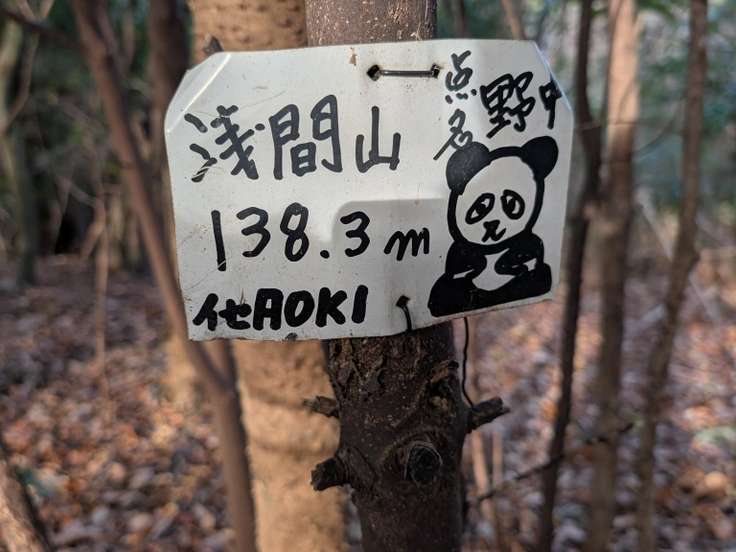 浅間山
点名 野中
138.3m
イセAOKI